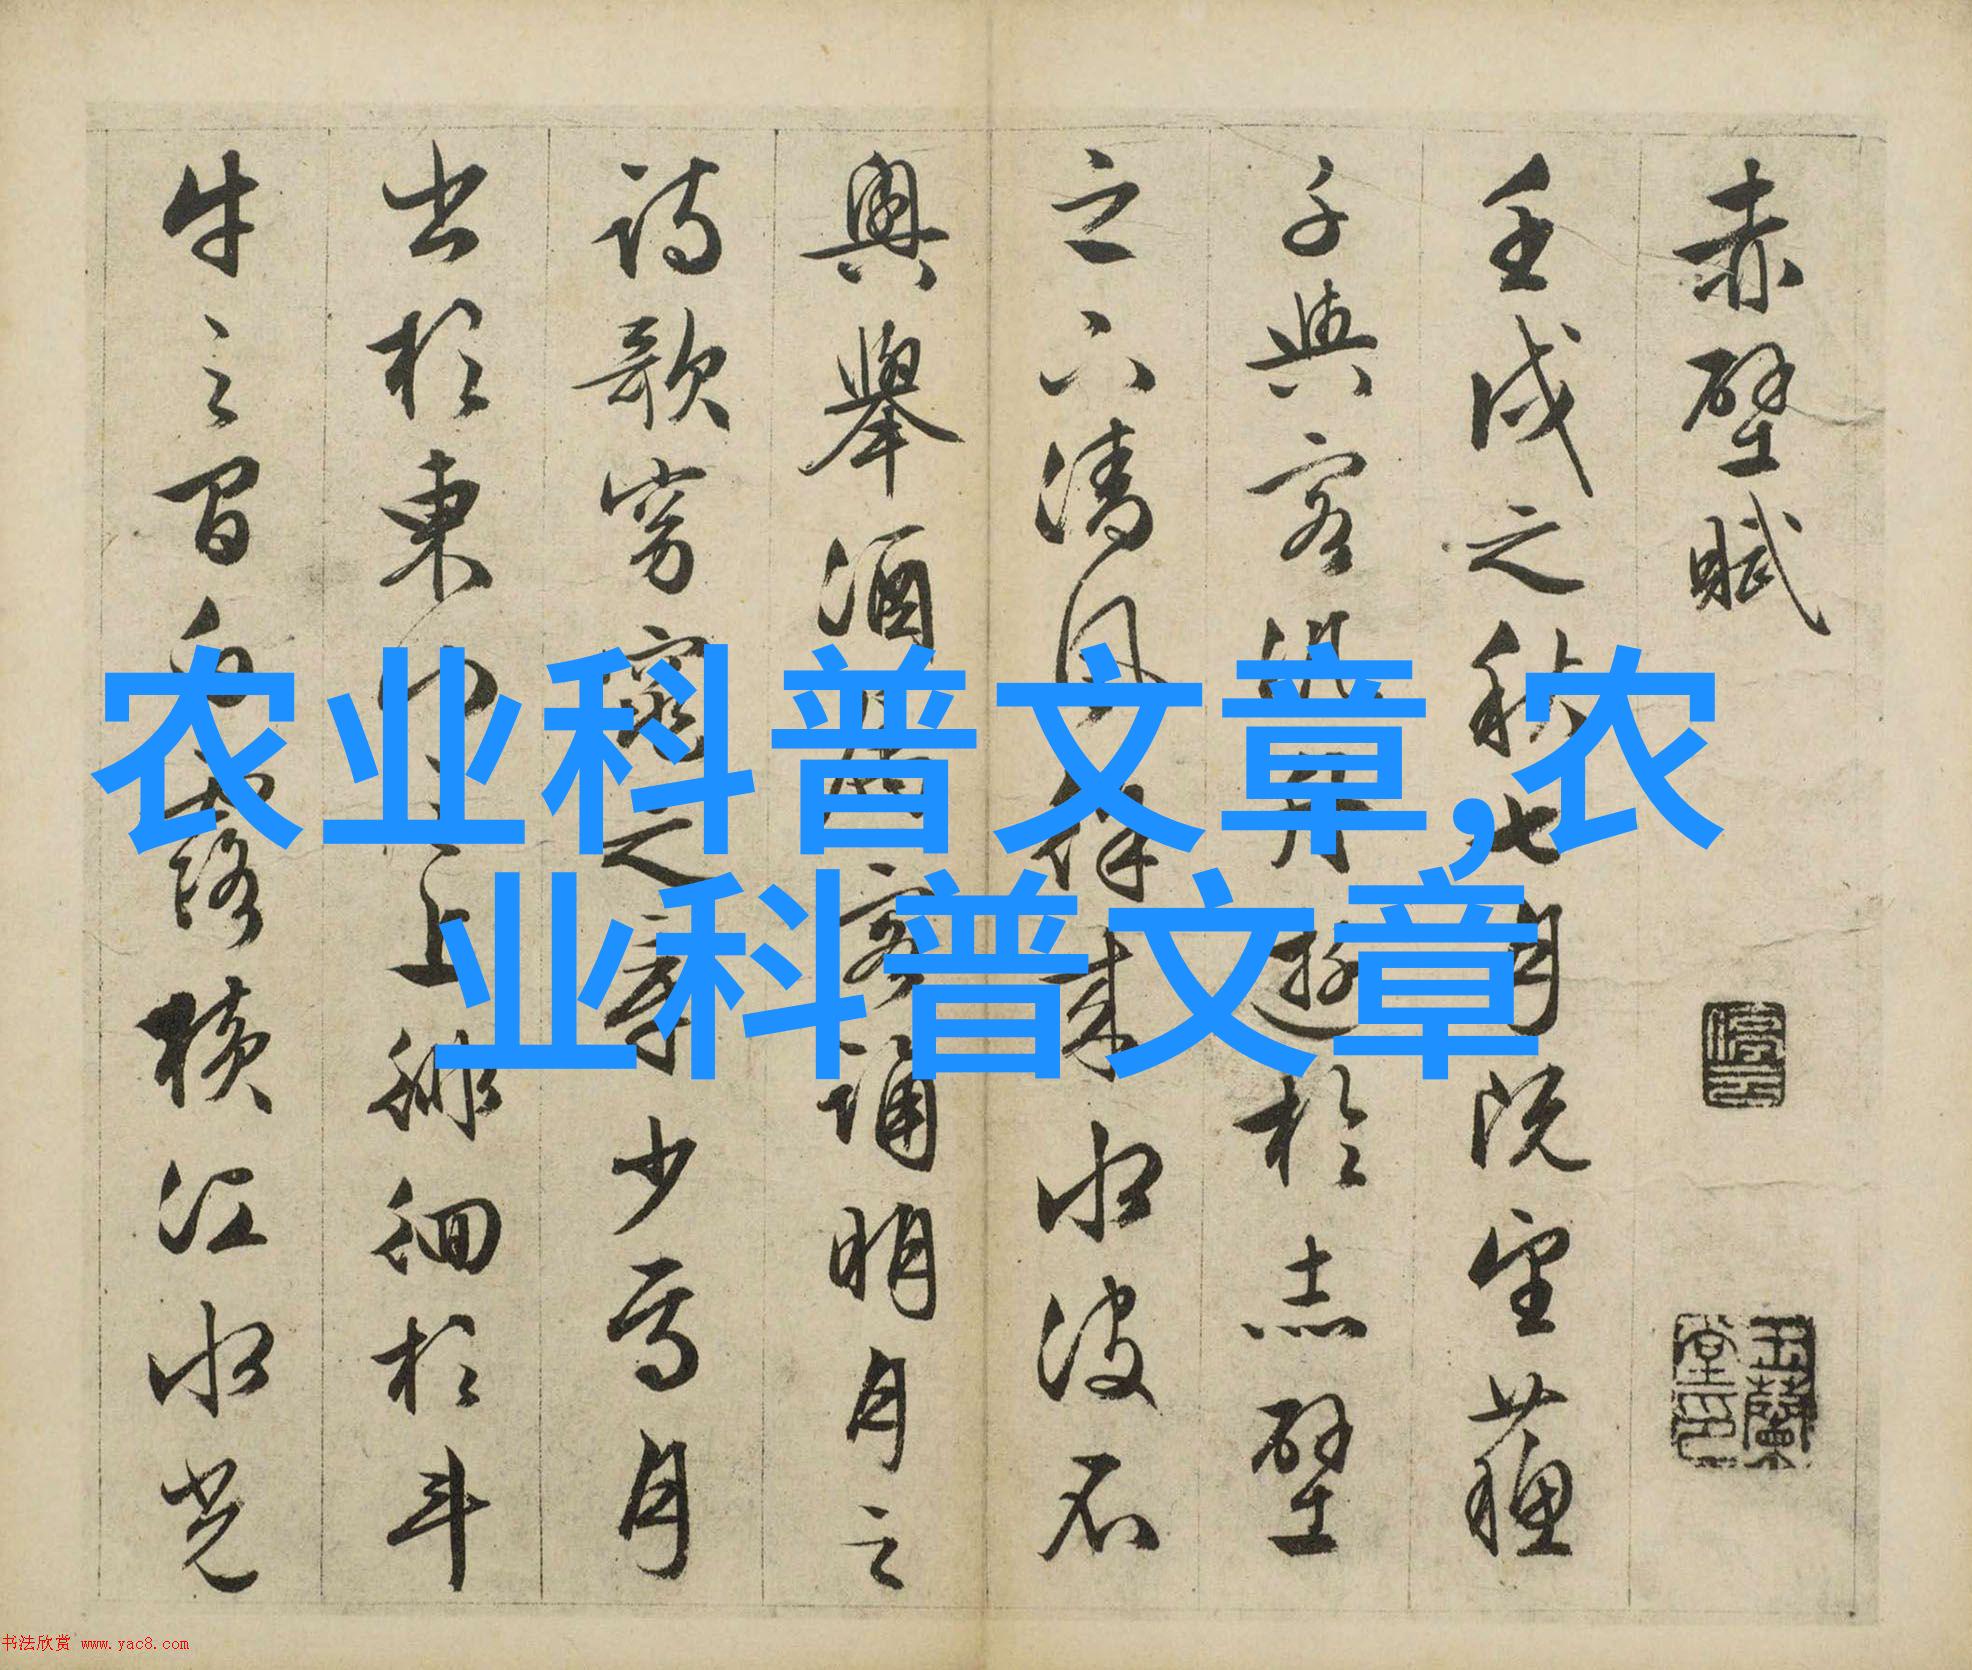 赤壁賦
壬戌之秋七月既望蘇
子與客泛舟遊於赤壁
之下清風徐來水波不
興舉酒屬客誦明月之
詩歌窈窕之章少焉月
出於東山之上徘徊於斗
牛之間白露橫江水光
停雲
玉蘭堂印
农业科普文章,农
业科普文章
书法欣赏 www.yac8.com